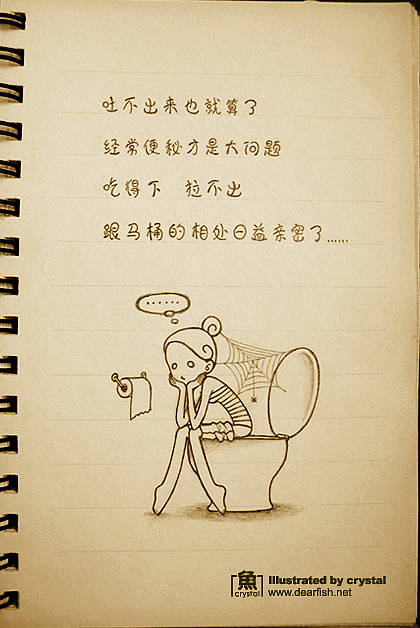 吐不出来也就算了
经常便秘才是大问题
吃得下 拉不出
跟马桶的相处日益亲密了......
......
魚
crystal
Illustrated by crystal
www.dearfish.net